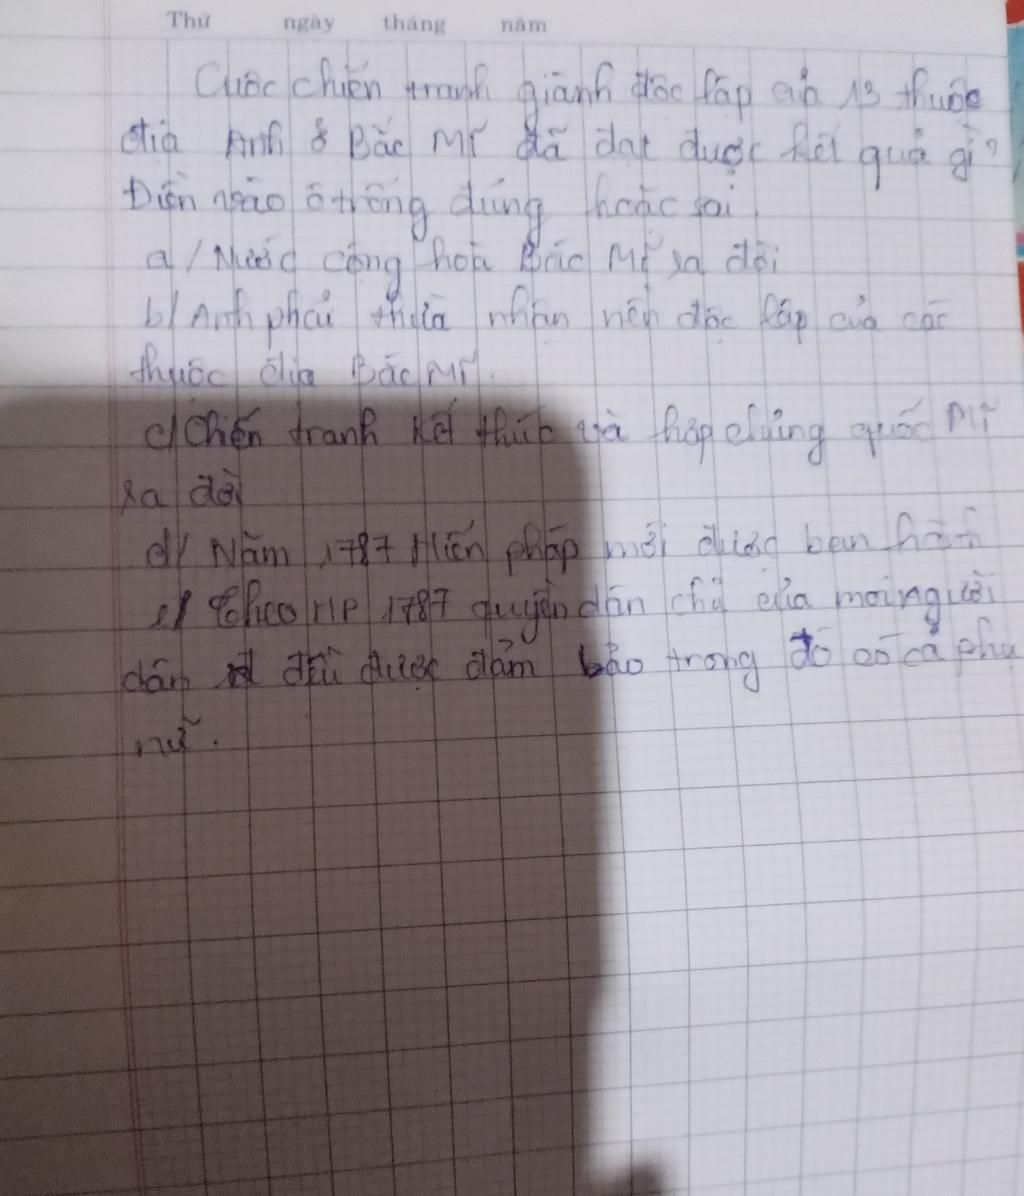 Thứ ngày tháng năm
Cuộc chiến tranh giành độc lập của 13 thuộc
địa Anh ở Bắc Mĩ đã đạt được kết quả gì?
Điền vào ô trống đúng hoặc sai
a/ Nước cộng hoà Bắc Mĩ ra đời
b/ Anh phải thừa nhận nền độc lập của các
thuộc địa Bắc Mĩ.
c/ Chến tranh kết thúc và hợp chủng quốc Mĩ
ra đời
d/ Năm 1787 Hiến pháp mới được ban hành
e/ Theo HP 1787 quyền dân chủ của mọi người
dân đều được đảm bảo trong đó có cả phụ
nữ.